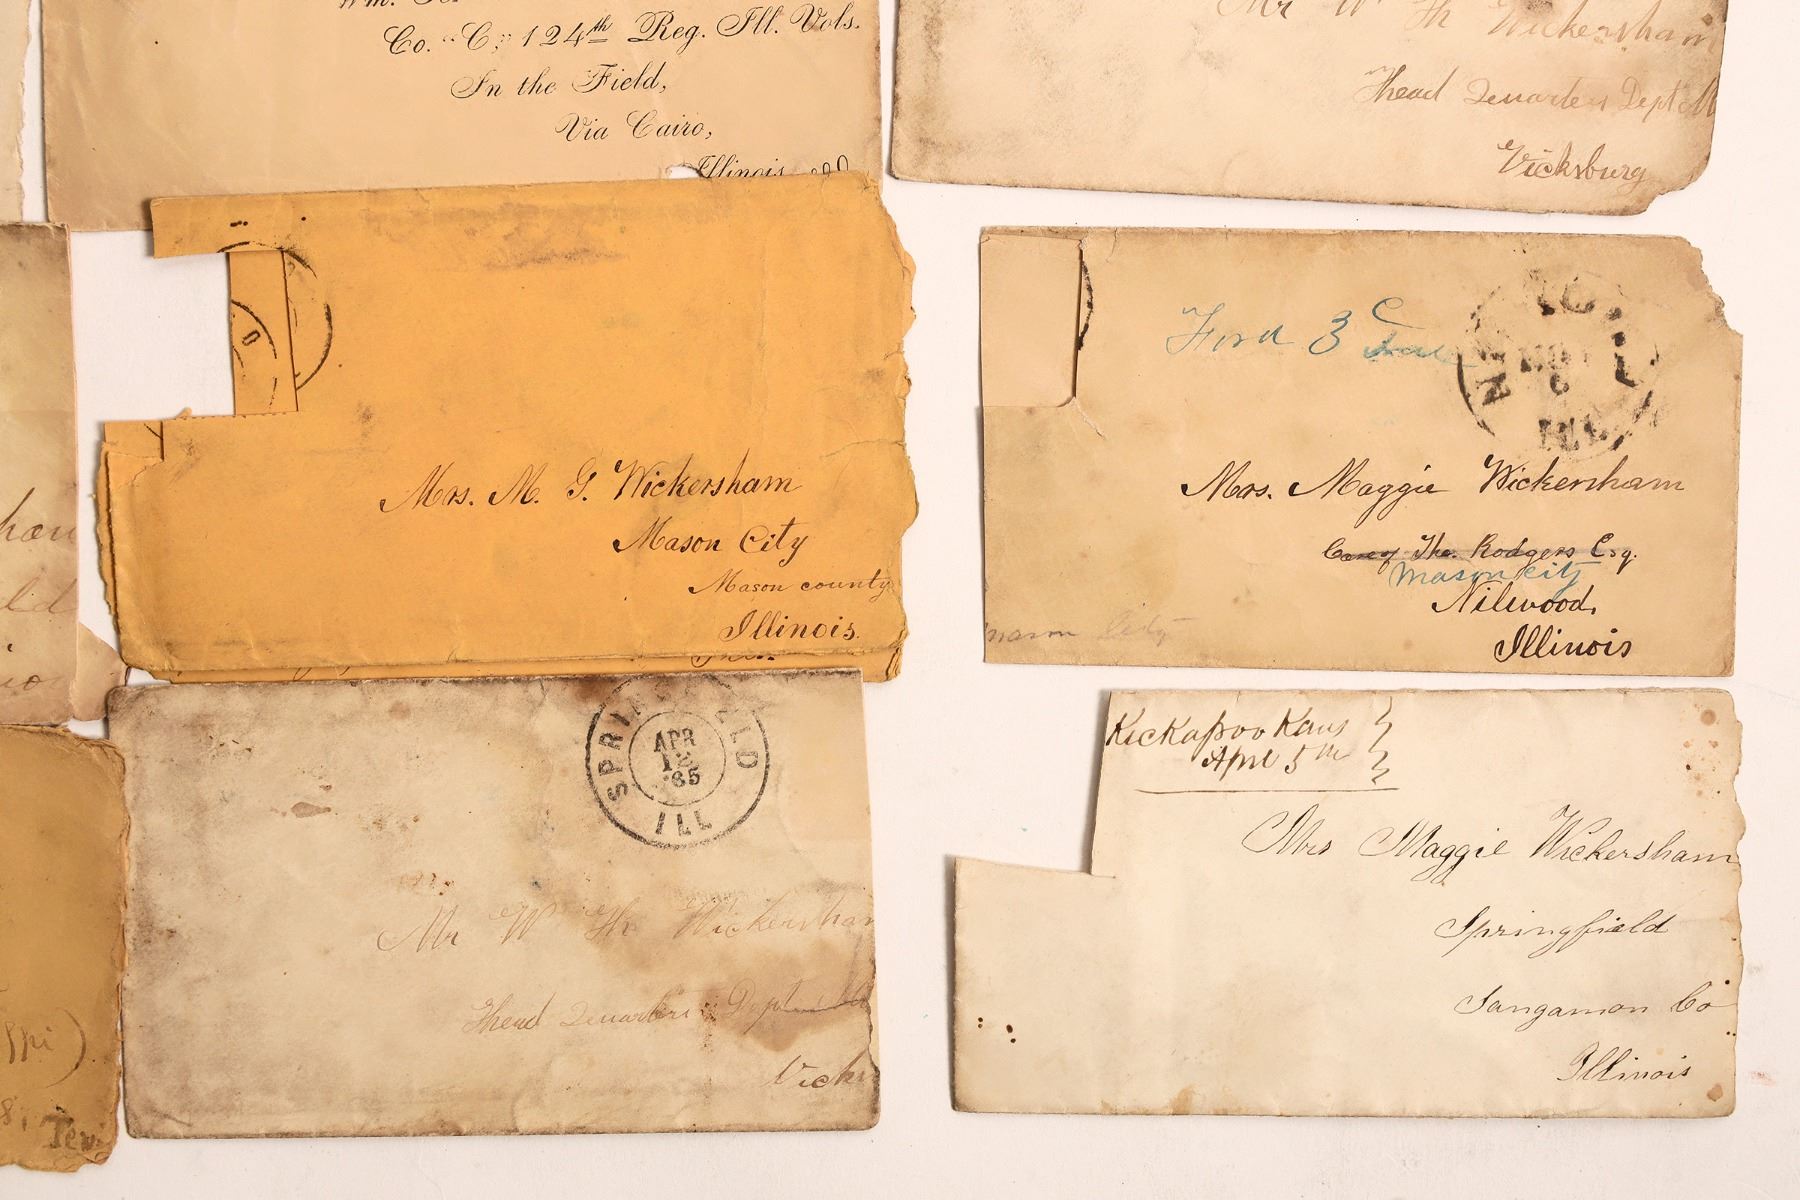 Wm.
Co. "C," 124th Reg. Ill. Vols.
In the Field,
Via Cairo,
Illinois
Mr W Th Wickersham
Head Quarters Dept
Vicksburg
Mrs. M. G. Wickersham
Mason City
Mason county
Illinois.
Ford 3 C
ILL
Mrs. Maggie Wickersham
Care of Tho. Rodgers Esq.
Mason City
Nilwood,
Illinois
mason City
SPRINGFIELD
APR
12
'65
ILL
Mr W Th Wickersham
Head Quarters Dept
Vicks
Kickapoo Kans
Apre 5th
Mrs Maggie Wickersham
Springfield
Sangamon Co
Illinois